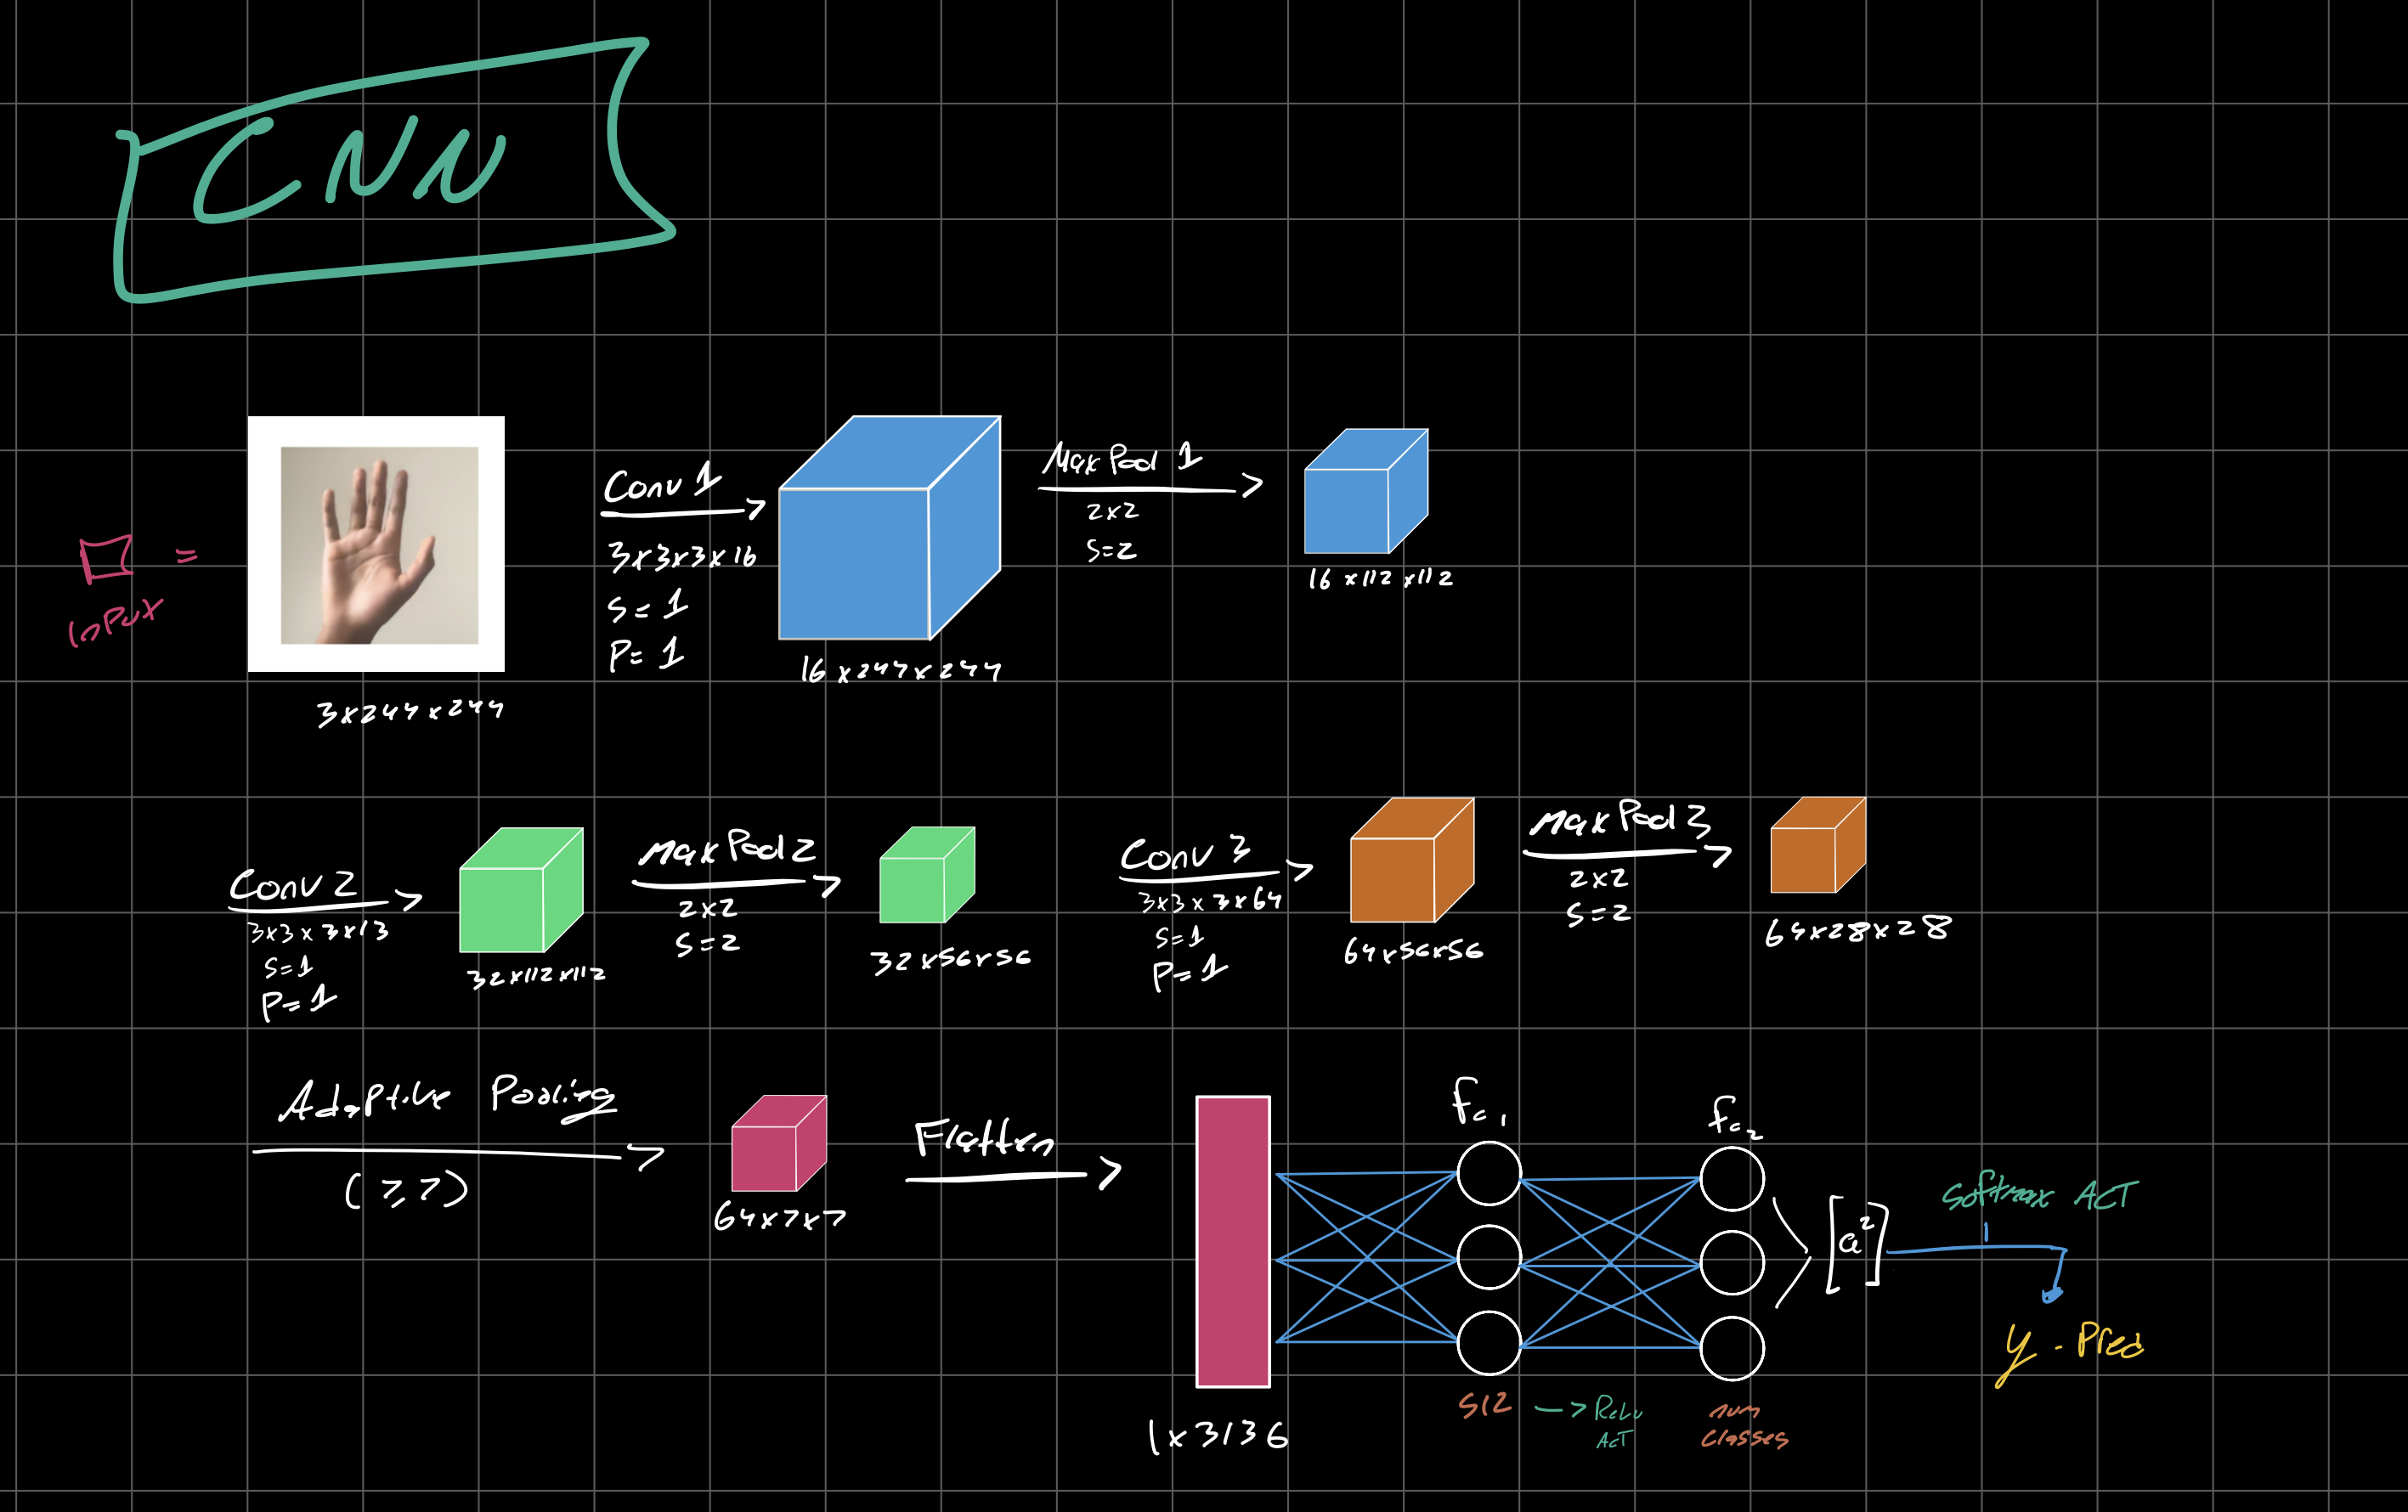 CNN
input
=
3x244x244
Conv 1
3x3x3x16
S=1
P=1
16x244x244
Max Pool 1
2x2
S=2
16x112x112
Conv 2
3x3x3x13
S=1
P=1
32x112x112
Max Pool 2
2x2
S=2
32x56x56
Conv 3
3x3x3x64
S=1
P=1
64x56x56
Max Pool 3
2x2
S=2
64x28x28
Adaptive Pooling
(7,7)
64x7x7
Flatten
1x3136
fc1
512
-> ReLu
Act
fc2
num
classes
[a²]
Softmax ACT
y-Pred